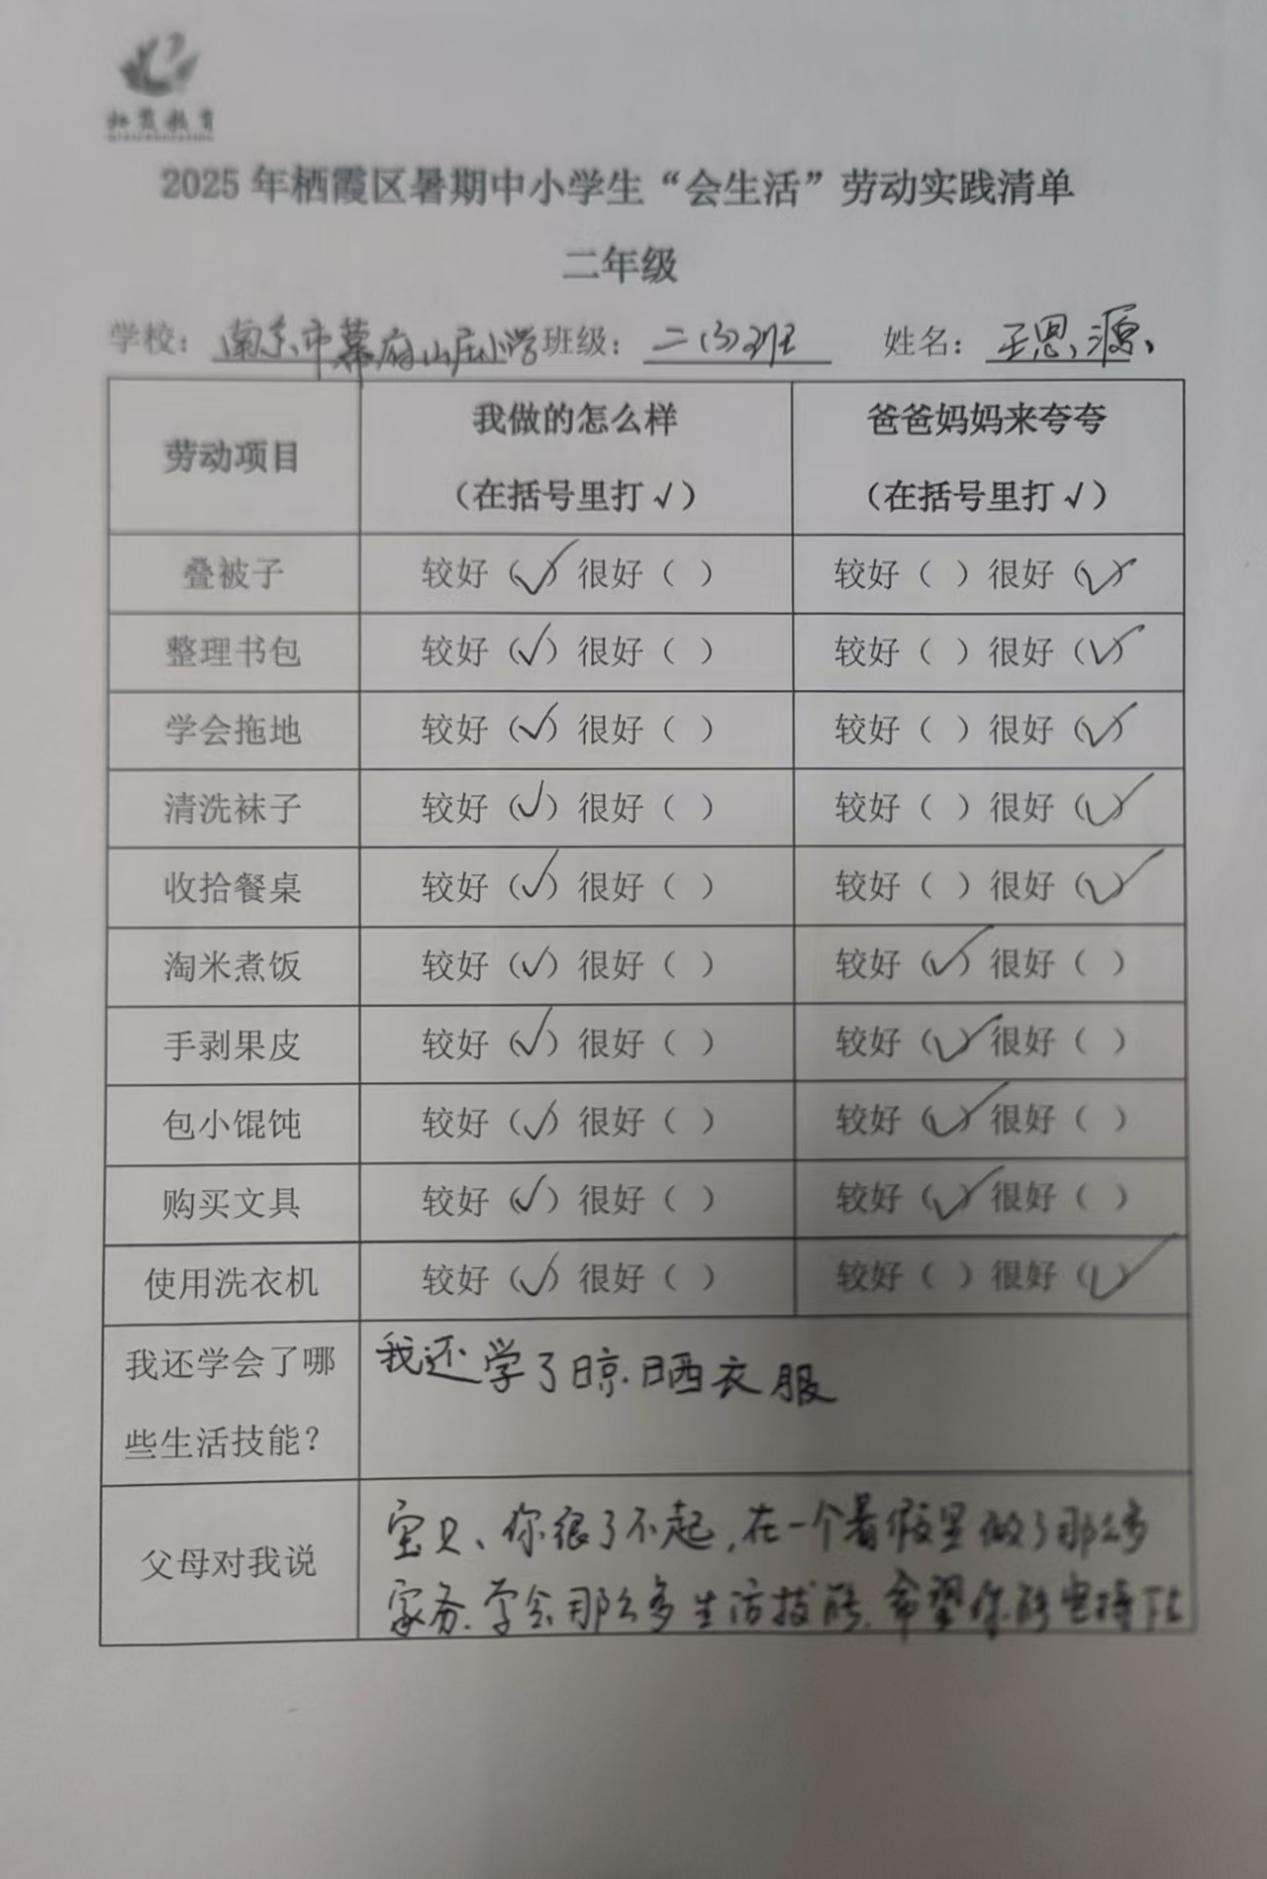 栖霞教育
2025年栖霞区暑期中小学生“会生活”劳动实践清单
二年级
学校：南京市幕府山庄小学 班级：二（3）班 姓名：王恩源
劳动项目 我做的怎么样（在括号里打√） 爸爸妈妈来夸夸（在括号里打√）
叠被子 较好（√）很好（ ） 较好（ ）很好（√）
整理书包 较好（√）很好（ ） 较好（ ）很好（√）
学会拖地 较好（√）很好（ ） 较好（ ）很好（√）
清洗袜子 较好（√）很好（ ） 较好（ ）很好（√）
收拾餐桌 较好（√）很好（ ） 较好（ ）很好（√）
淘米煮饭 较好（√）很好（ ） 较好（√）很好（ ）
手剥果皮 较好（√）很好（ ） 较好（√）很好（ ）
包小馄饨 较好（√）很好（ ） 较好（√）很好（ ）
购买文具 较好（√）很好（ ） 较好（√）很好（ ）
使用洗衣机 较好（√）很好（ ） 较好（ ）很好（√）
我还学会了哪
些生活技能？
我还学了晾晒衣服
父母对我说
宝贝、你很了不起，在一个暑假里做了那么多
家务.学会那么多生活技能.希望你能坚持下去